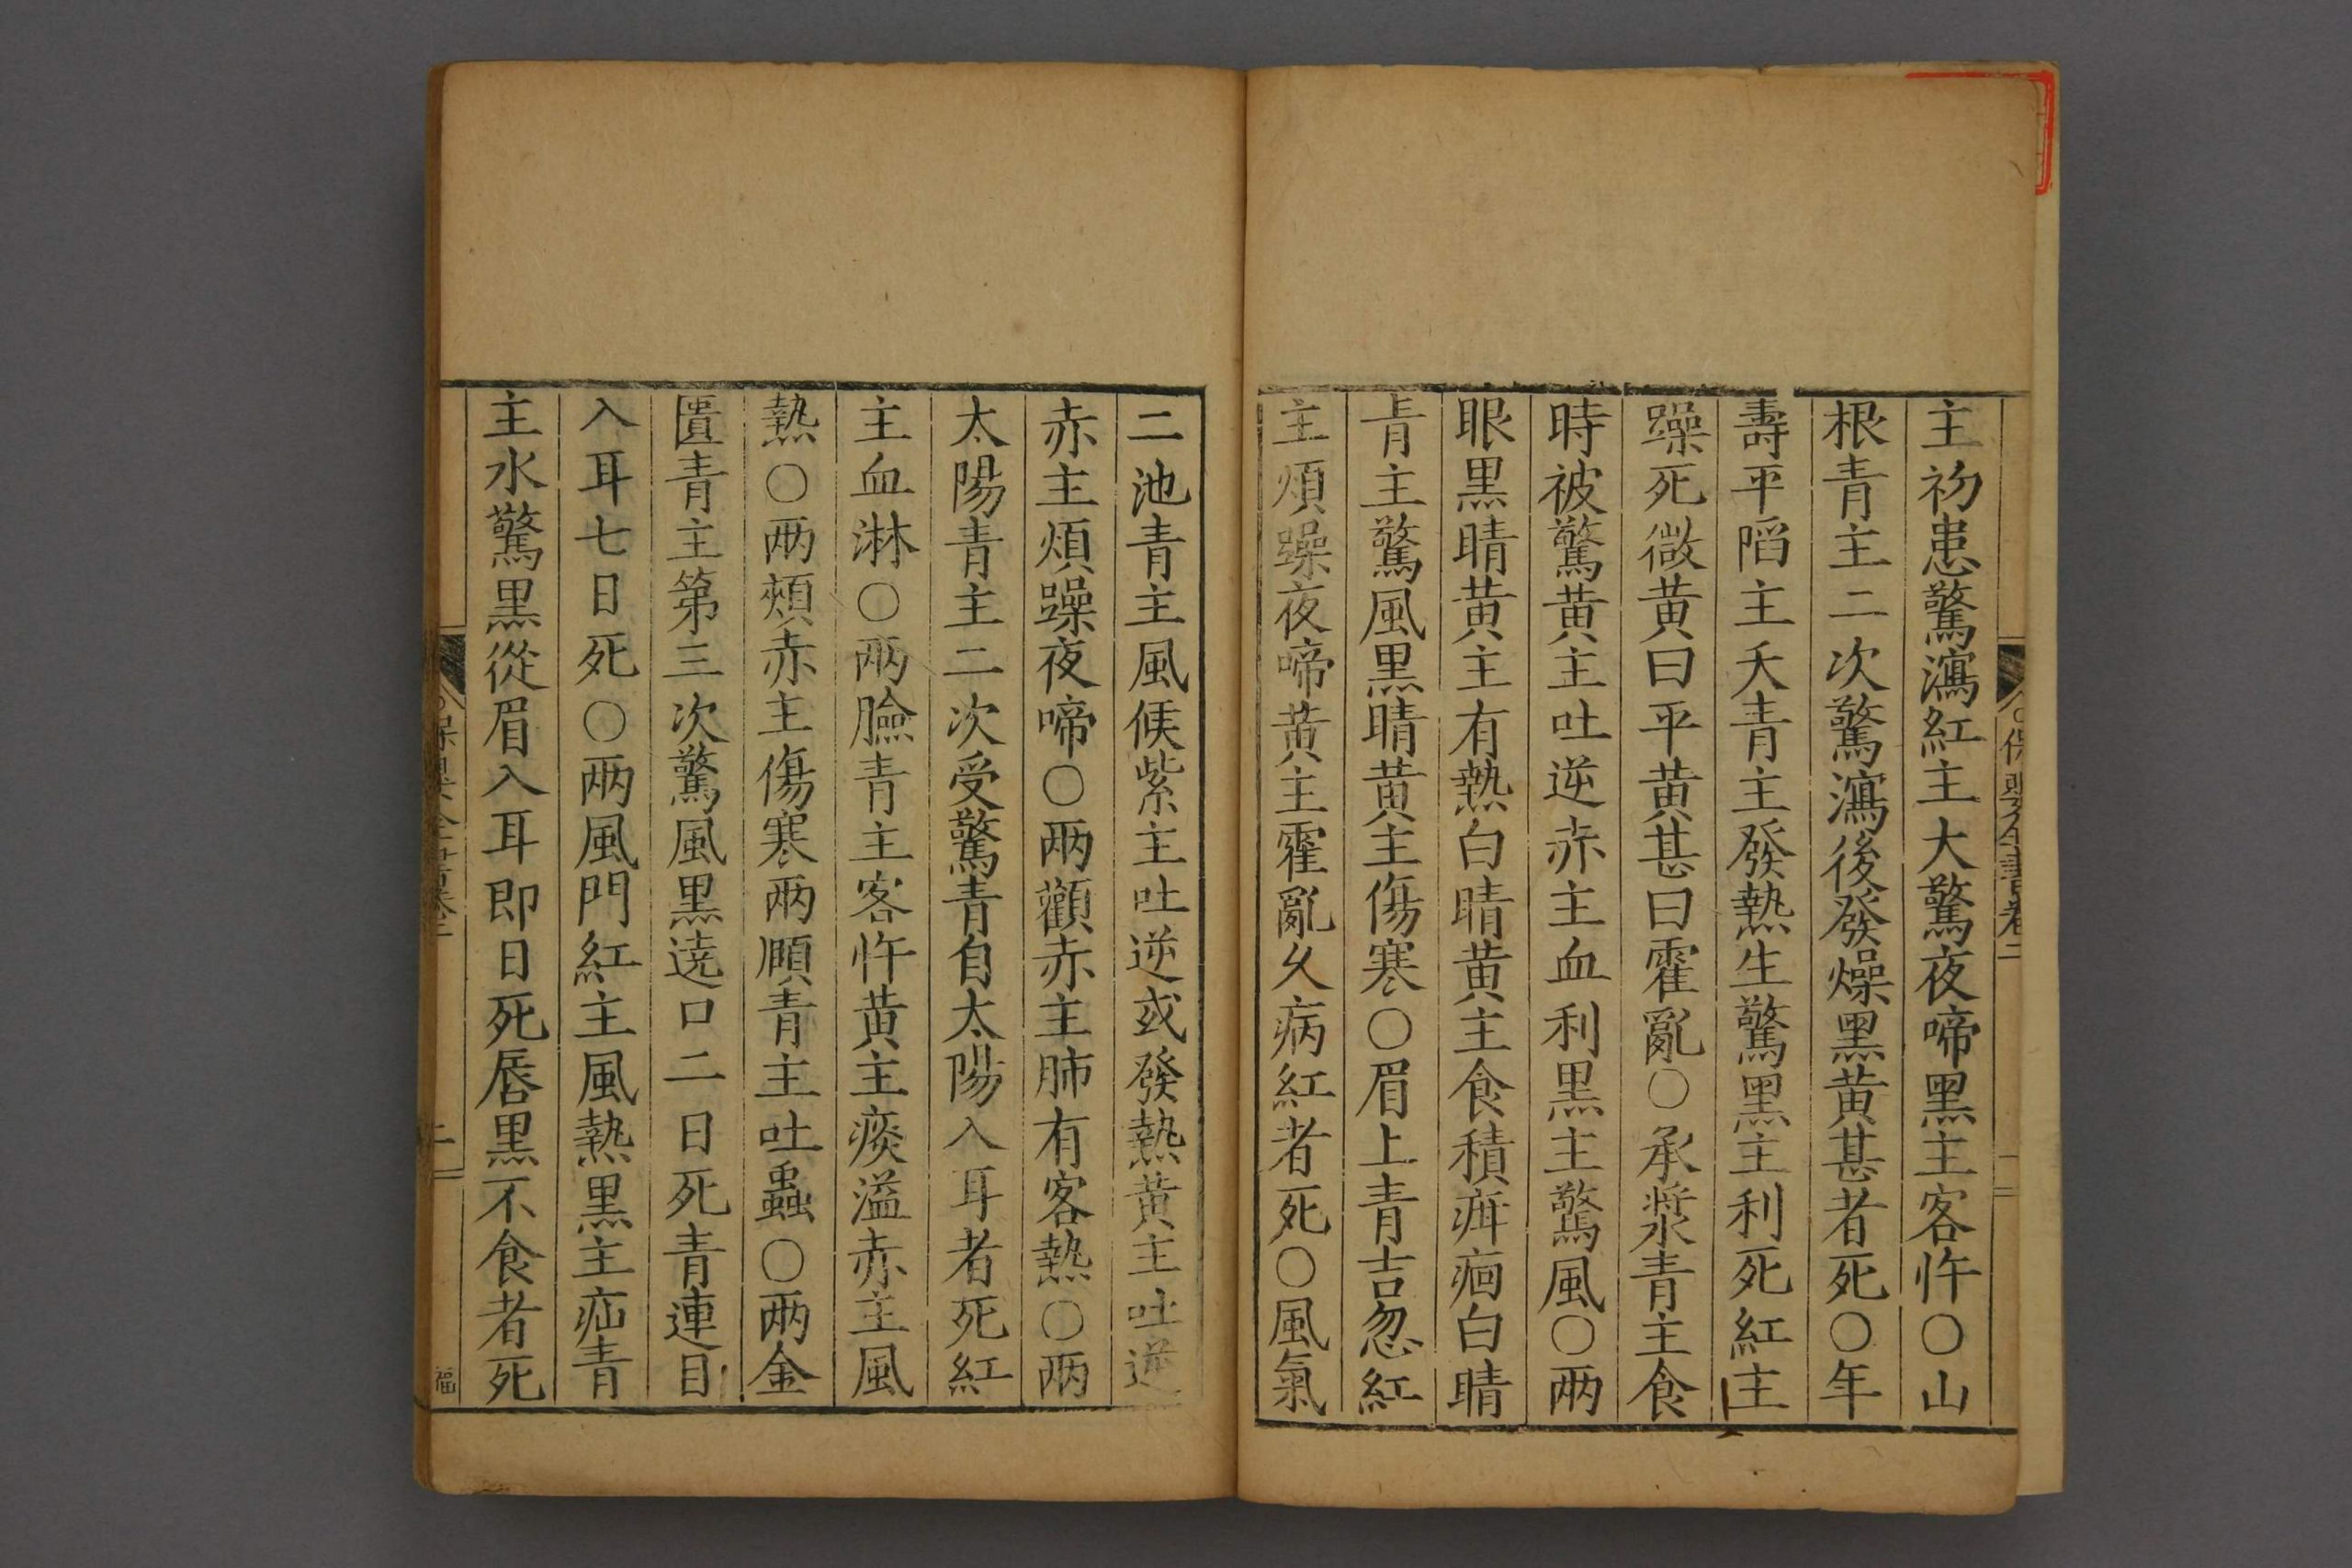 主初患驚瀉紅主大驚夜啼黑主客忤〇山
根青主二次驚瀉後發燥黑黃甚者死〇年
壽平陷主夭青主發熱生驚黑主利死紅主
躁死微黃曰平黃甚曰霍亂〇承漿青主食
時被驚黃主吐逆赤主血利黑主驚風〇兩
眼黑睛黃主有熱白睛黃主食積疳痼白睛
青主驚風黑睛黃主傷寒〇眉上青吉忽紅
主煩躁夜啼黃主霍亂久病紅者死〇風氣
二池青主風候紫主吐逆或發熱黃主吐逆
赤主煩躁夜啼〇兩顴赤主肺有客熱〇兩
太陽青主二次受驚青自太陽入耳者死紅
主血淋〇兩臉青主客忤黃主痰溢赤主風
熱〇兩頰赤主傷寒兩頤青主吐蟲〇兩金
匱青主第三次驚風黑遶口二日死青連目
入耳七日死〇兩風門紅主風熱黑主疝青
主水驚黑從眉入耳即日死唇黑不食者死
保嬰全書卷二
福